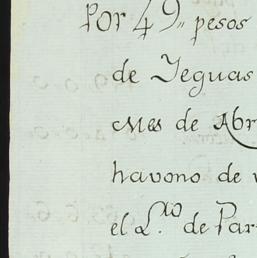 Por 49,, pesos
de Yeguas
Mes de Abr
havono de v
el L.do de Par